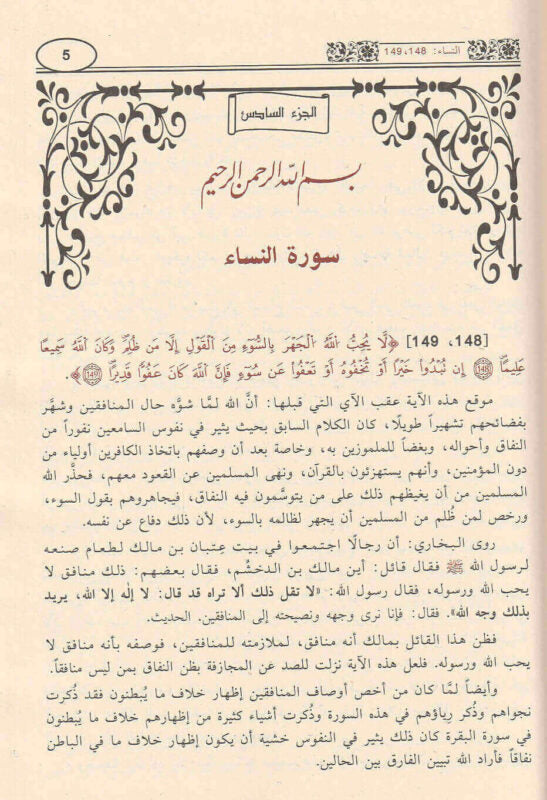 النساء: 148، 149
5
الجزء السادس
بسم الله الرحمن الرحيم
سورة النساء
[148، 149] ﴿لَّا يُحِبُّ اللَّهُ الْجَهْرَ بِالسُّوءِ مِنَ الْقَوْلِ إِلَّا مَن ظُلِمَ وَكَانَ اللَّهُ سَمِيعًا
عَلِيمًا ١٤٨ إِن تُبْدُوا خَيْرًا أَوْ تُخْفُوهُ أَوْ تَعْفُوا عَن سُوءٍ فَإِنَّ اللَّهَ كَانَ عَفُوًّا قَدِيرًا ١٤٩﴾.
موقع هذه الآية عقب الآي التي قبلها: أنَّ الله لمَّا شوَّه حال المنافقين وشهَّر
بفضائحهم تشهيراً طويلًا، كان الكلام السابق بحيث يثير في نفوس السامعين نفوراً من
النفاق وأحواله، وبغضاً للملموزين به، وخاصة بعد أن وصفهم باتخاذ الكافرين أولياء من
دون المؤمنين، وأنهم يستهزئون بالقرآن، ونهى المسلمين عن القعود معهم، فحذَّر الله
المسلمين من أن يغيظهم ذلك على من يتوسَّمون فيه النفاق، فيجاهروهم بقول السوء،
ورخص لمن ظُلم من المسلمين أن يجهر لظالمه بالسوء، لأن ذلك دفاع عن نفسه.
روى البخاري: أن رجالًا اجتمعوا في بيت عِتبان بن مالك لطعام صنعه
لرسول الله ﷺ فقال قائل: أين مالك بن الدخشُم، فقال بعضهم: ذلك منافق لا
يحب الله ورسوله، فقال رسول الله: «لا تقل ذلك ألا تراه قد قال: لا إله إلا الله، يريد
بذلك وجه الله». فقال: فإنا نرى وجهه ونصيحته إلى المنافقين. الحديث.
فظن هذا القائل بمالك أنه منافق، لملازمته للمنافقين، فوصفه بأنه منافق لا
يحب الله ورسوله. فلعل هذه الآية نزلت للصد عن المجازفة بظن النفاق بمن ليس منافقاً.
وأيضاً لمَّا كان من أخص أوصاف المنافقين إظهار خلاف ما يُبطنون فقد ذُكرت
نجواهم وذُكر رِياؤهم في هذه السورة وذُكرت أشياء كثيرة من إظهارهم خلاف ما يُبطنون
في سورة البقرة كان ذلك يثير في النفوس خشية أن يكون إظهار خلاف ما في الباطن
نفاقاً فأراد الله تبيين الفارق بين الحالين.